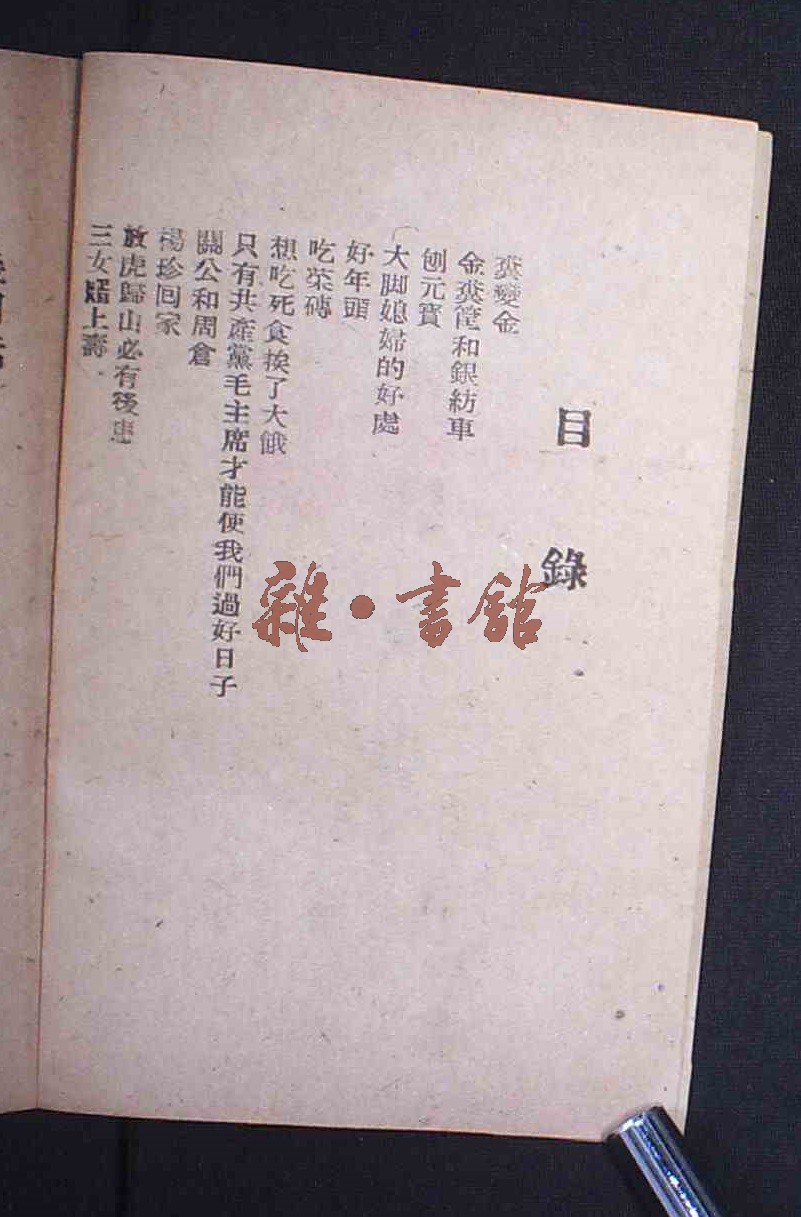 目錄
糞變金
金糞筐和銀紡車
刨元寶
大脚媳婦的好處
好年頭
吃茶磚
想吃死食挨了大餓
只有共產黨毛主席才能使我們過好日子
關公和周倉
楊珍回家
放虎歸山必有後患
三女婿上壽
雜·書館